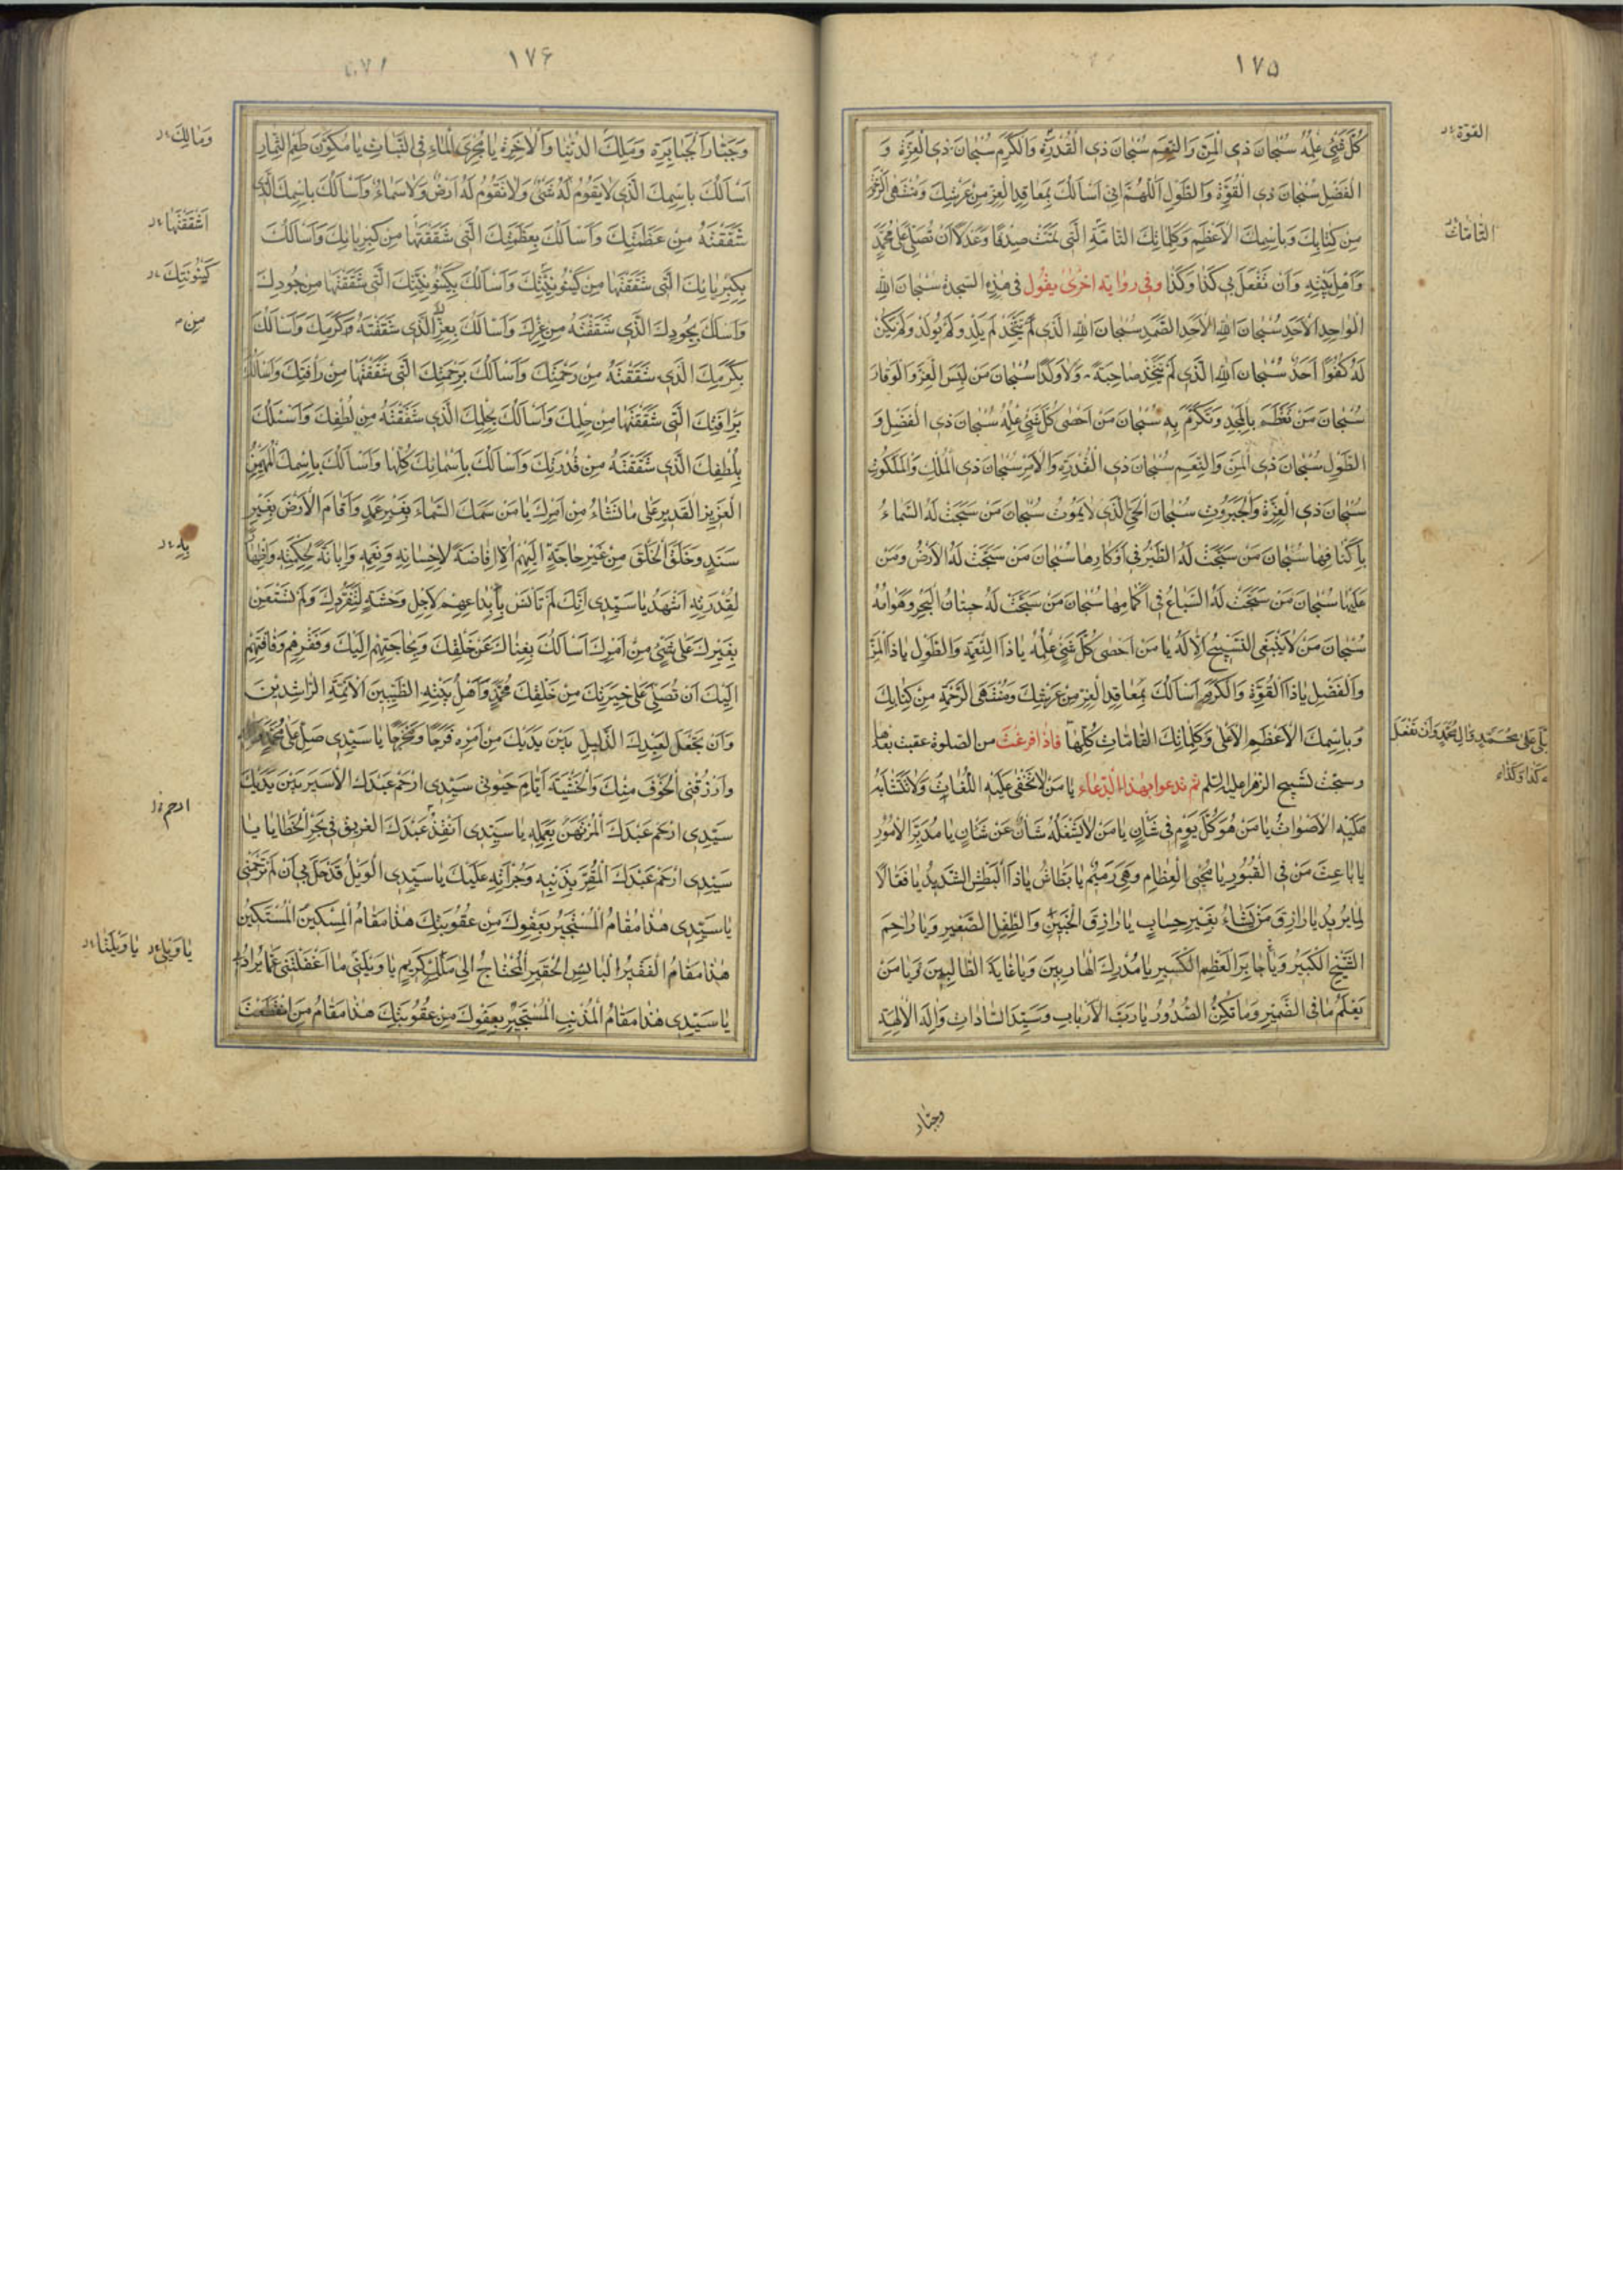 ١٧۵
كُلَّ شَيْءٍ عِلْمُهُ سُبْحَانَ ذِي الْمَنِّ وَالنِّعَمِ سُبْحَانَ ذِي الْقُدْرَةِ وَالْكَرَمِ سُبْحَانَ ذِي الْعِزَّةِ وَ
الْفَضْلِ سُبْحَانَ ذِي الْقُوَّةِ وَالطَّوْلِ اَللّٰهُمَّ اِنّي اَسْاَلُكَ بِمَعَاقِدِ الْعِزِّ مِنْ عَرْشِكَ وَمُنْتَهَى الرَّحْمَةِ
مِنْ كِتَابِكَ وَبِاسْمِكَ الْاَعْظَمِ وَكَلِمَاتِكَ التَّامَّةِ الَّتي تَمَّتْ صِدْقًا وَعَدْلًا اَنْ تُصَلِّيَ عَلىٰ مُحَمَّدٍ
وَاَهْلِ بَيْتِهِ وَاَنْ تَفْعَلَ بي كَذَا وَكَذَا وفي روايه اخرىٰ يقول في هٰذِهِ السجدة سُبْحَانَ اللهِ
الْوَاحِدِ الْاَحَدِ سُبْحَانَ اللهِ الْاَحَدِ الصَّمَدِ سُبْحَانَ اللهِ الَّذي لَمْ يَتَّخِذْ لَمْ يَلِدْ وَلَمْ يُولَدْ وَلَمْ يَكُنْ
لَهُ كُفُوًا اَحَدٌ سُبْحَانَ اللهِ الَّذي لَمْ يَتَّخِذْ صَاحِبَةً وَلَا وَلَدًا سُبْحَانَ مَنْ لَبِسَ الْعِزَّ وَالْوَقَارَ
سُبْحَانَ مَنْ تَعَظَّمَ بِالْمَجْدِ وَتَكَرَّمَ بِهِ سُبْحَانَ مَنْ اَحْصىٰ كُلَّ شَيْءٍ عِلْمُهُ سُبْحَانَ ذِي الْفَضْلِ وَ
الطَّوْلِ سُبْحَانَ ذِي الْمَنِّ وَالنِّعَمِ سُبْحَانَ ذِي الْقُدْرَةِ وَالْاَمْرِ سُبْحَانَ ذِي الْمُلْكِ وَالْمَلَكُوتِ
سُبْحَانَ ذِي الْعِزَّةِ وَالْجَبَرُوتِ سُبْحَانَ الْحَيِّ الَّذي لَا يَمُوتُ سُبْحَانَ مَنْ سَبَّحَتْ لَهُ السَّمَاءُ
بِاَكْنَافِهَا سُبْحَانَ مَنْ سَبَّحَتْ لَهُ الطَّيْرُ في اَوْكَارِهَا سُبْحَانَ مَنْ سَبَّحَتْ لَهُ الْاَرْضُ وَمَنْ
عَلَيْهَا سُبْحَانَ مَنْ سَبَّحَتْ لَهُ السِّبَاعُ في اٰكَامِهَا سُبْحَانَ مَنْ سَبَّحَتْ لَهُ حِيتَانُ الْبَحْرِ وَهَوَامُّهُ
سُبْحَانَ مَنْ لَا يَنْبَغِي التَّسْبيحُ اِلَّا لَهُ يَا مَنْ اَحْصىٰ كُلَّ شَيْءٍ عِلْمُهُ يَا ذَا النِّعْمَةِ وَالطَّوْلِ يَا ذَا الْمَنِّ
وَالْفَضْلِ يَا ذَا الْقُوَّةِ وَالْكَرَمِ اَسْاَلُكَ بِمَعَاقِدِ الْعِزِّ مِنْ عَرْشِكَ وَمُنْتَهَى الرَّحْمَةِ مِنْ كِتَابِكَ
وَبِاسْمِكَ الْاَعْظَمِ الْاَعْلىٰ وَكَلِمَاتِكَ التَّامَّاتِ كُلِّهَا فاذا فرغت من الصلوة عقبت بعدها
وسبّحت تسبيح الزهرا عليها السّلم ثم تدعوا بهذا الدّعاء يَا مَنْ لَا تَخْفىٰ عَلَيْهِ اللُّغَاتُ وَلَا تَتَشَابَهُ
عَلَيْهِ الْاَصْوَاتُ يَا مَنْ هُوَ كُلَّ يَوْمٍ في شَانٍ يَا مَنْ لَا يَشْغَلُهُ شَانٌ عَنْ شَانٍ يَا مُدَبِّرَ الْاُمُورِ
يَا بَاعِثَ مَنْ فِي الْقُبُورِ يَا مُحْيِيَ الْعِظَامِ وَهِيَ رَميمٌ يَا بَطَّاشُ يَا ذَا الْبَطْشِ الشَّديدِ يَا فَعَّالًا
لِمَا يُريدُ يَا رَازِقَ مَنْ يَشَاءُ بِغَيْرِ حِسَابٍ يَا رَازِقَ الْجَنينِ وَالطِّفْلِ الصَّغيرِ وَيَا رَاحِمَ
الشَّيْخِ الْكَبيرِ وَيَا جَابِرَ الْعَظْمِ الْكَسيرِ يَا مُدْرِكَ الْهَارِبينَ وَيَا غَايَةَ الطَّالِبينَ وَيَا مَنْ
يَعْلَمُ مَا فِي الضَّميرِ وَمَا تُكِنُّ الصُّدُورُ يَا رَبَّ الْاَرْبَابِ وَسَيِّدَ السَّادَاتِ وَاِلٰهَ الْاٰلِهَةِ
وجبّار
القوّة
التَّامّاتُ
عَلىٰ مُحَمَّدٍ وَاٰلِ مُحَمَّدٍ وَاَنْ تَفْعَلَ
كَذَا وَكَذَا
١٧۶
وَجَبَّارَ الْجَبَابِرَةِ وَمَلِكَ الدُّنْيَا وَالْاٰخِرَةِ يَا مُجْرِيَ الْمَاءِ فِي النَّبَاتِ يَا مُكَوِّنَ طَعْمِ الثِّمَارِ
اَسْاَلُكَ بِاسْمِكَ الَّذي لَا يَقُومُ لَهُ شَيْءٌ وَلَا تَقُومُ لَهُ اَرْضٌ وَلَا سَمَاءٌ وَاَسْاَلُكَ بِاسْمِكَ الَّذي
شَقَقْتَهُ مِنْ عَظَمَتِكَ وَاَسْاَلُكَ بِعَظَمَتِكَ الَّتي شَقَقْتَهَا مِنْ كِبْرِيَائِكَ وَاَسْاَلُكَ
بِكِبْرِيَائِكَ الَّتي شَقَقْتَهَا مِنْ كَيْنُونِيَّتِكَ وَاَسْاَلُكَ بِكَيْنُونِيَّتِكَ الَّتي شَقَقْتَهَا مِنْ جُودِكَ
وَاَسْاَلُكَ بِجُودِكَ الَّذي شَقَقْتَهُ مِنْ عِزِّكَ وَاَسْاَلُكَ بِعِزِّكَ الَّذي شَقَقْتَهُ كَرَمِكَ وَاَسْاَلُكَ
بِكَرَمِكَ الَّذي شَقَقْتَهُ مِنْ رَحْمَتِكَ وَاَسْاَلُكَ بِرَحْمَتِكَ الَّتي شَقَقْتَهَا مِنْ رَاْفَتِكَ وَاَسْاَلُكَ
بِرَاْفَتِكَ الَّتي شَقَقْتَهَا مِنْ حِلْمِكَ وَاَسْاَلُكَ بِحِلْمِكَ الَّذي شَقَقْتَهُ مِنْ لُطْفِكَ وَاَسْئَلُكَ
بِلُطْفِكَ الَّذي شَقَقْتَهُ مِنْ قُدْرَتِكَ وَاَسْاَلُكَ بِاَسْمَائِكَ كُلِّهَا وَاَسْاَلُكَ بِاسْمِكَ الْمُهَيْمِنِ
الْعَزيزِ الْقَديرِ عَلىٰ مَا تَشَاءُ مِنْ اَمْرِكَ يَا مَنْ سَمَكَ السَّمَاءَ بِغَيْرِ عَمَدٍ وَاَقَامَ الْاَرْضَ بِغَيْرِ
سَنَدٍ وَخَلَقَ الْخَلْقَ مِنْ غَيْرِ حَاجَةٍ اِلَيْهِمْ اِلَّا اِفَاضَةً لِاِحْسَانِهِ وَنِعَمِهِ وَاِبَانَةً لِحِكْمَتِهِ وَاِظْهَارًا
لِقُدْرَتِهِ اَشْهَدُ يَا سَيِّدي اَنَّكَ لَمْ تَاْنَسْ بِاِبْتِدَاعِهِمْ لِاَجْلِ وَحْشَةٍ لِتَفَرُّدِكَ وَلَمْ تَسْتَعِنْ
بِغَيْرِكَ عَلىٰ شَيْءٍ مِنْ اَمْرِكَ اَسْاَلُكَ بِغِنَاكَ عَنْ خَلْقِكَ وَبِحَاجَتِهِمْ اِلَيْكَ وَفَقْرِهِمْ وَفَاقَتِهِمْ
اِلَيْكَ اَنْ تُصَلِّيَ عَلىٰ خِيَرَتِكَ مِنْ خَلْقِكَ مُحَمَّدٍ وَاَهْلِ بَيْتِهِ الطَّيِّبينَ الْاَئِمَّةِ الرَّاشِدينَ
وَاَنْ تَجْعَلَ لِعَبْدِكَ الذَّليلِ بَيْنَ يَدَيْكَ مِنْ اَمْرِهِ فَرَجًا وَمَخْرَجًا يَا سَيِّدي صَلِّ عَلىٰ مُحَمَّدٍ
وَارْزُقْنِي الْخَوْفَ مِنْكَ وَالْخَشْيَةَ اَيَّامَ حَيٰوتي سَيِّدي ارْحَمْ عَبْدَكَ الْاَسيرَ بَيْنَ يَدَيْكَ
سَيِّدي ارْحَمْ عَبْدَكَ الْمُرْتَهَنَ بِعَمَلِهِ يَا سَيِّدي اَنْقِذْ عَبْدَكَ الْغَريقَ في بَحْرِ الْخَطَايَا يَا
سَيِّدي ارْحَمْ عَبْدَكَ الْمُقِرَّ بِذَنْبِهِ وَجُرْاَتِهِ عَلَيْكَ يَا سَيِّدي الْوَيْلُ قَدْ حَلَّ بي اِنْ لَمْ تَرْحَمْني
يَا سَيِّدي هٰذَا مَقَامُ الْمُسْتَجيرِ بِعَفْوِكَ مِنْ عُقُوبَتِكَ هٰذَا مَقَامُ الْمِسْكينِ الْمُسْتَكينِ
هٰذَا مَقَامُ الْفَقيرِ الْبَائِسِ الْحَقيرِ الْمُحْتَاجِ اِلىٰ مَلِكٍ كَريمٍ يَا وَيْلَتىٰ مَا اَغْفَلَني عَمَّا يُرَادُ
يَا سَيِّدي هٰذَا مَقَامُ الْمُذْنِبِ الْمُسْتَجيرِ بِعَفْوِكَ مِنْ عُقُوبَتِكَ هٰذَا مَقَامُ مَنِ انْقَطَعَتْ
وَمَالِكَ
اشْقَقْتَهَا
كَيْنُونَتِكَ
مِنْ
بِهِ
ارحم
يَا وَيْلي يَا وَيْلَتَا